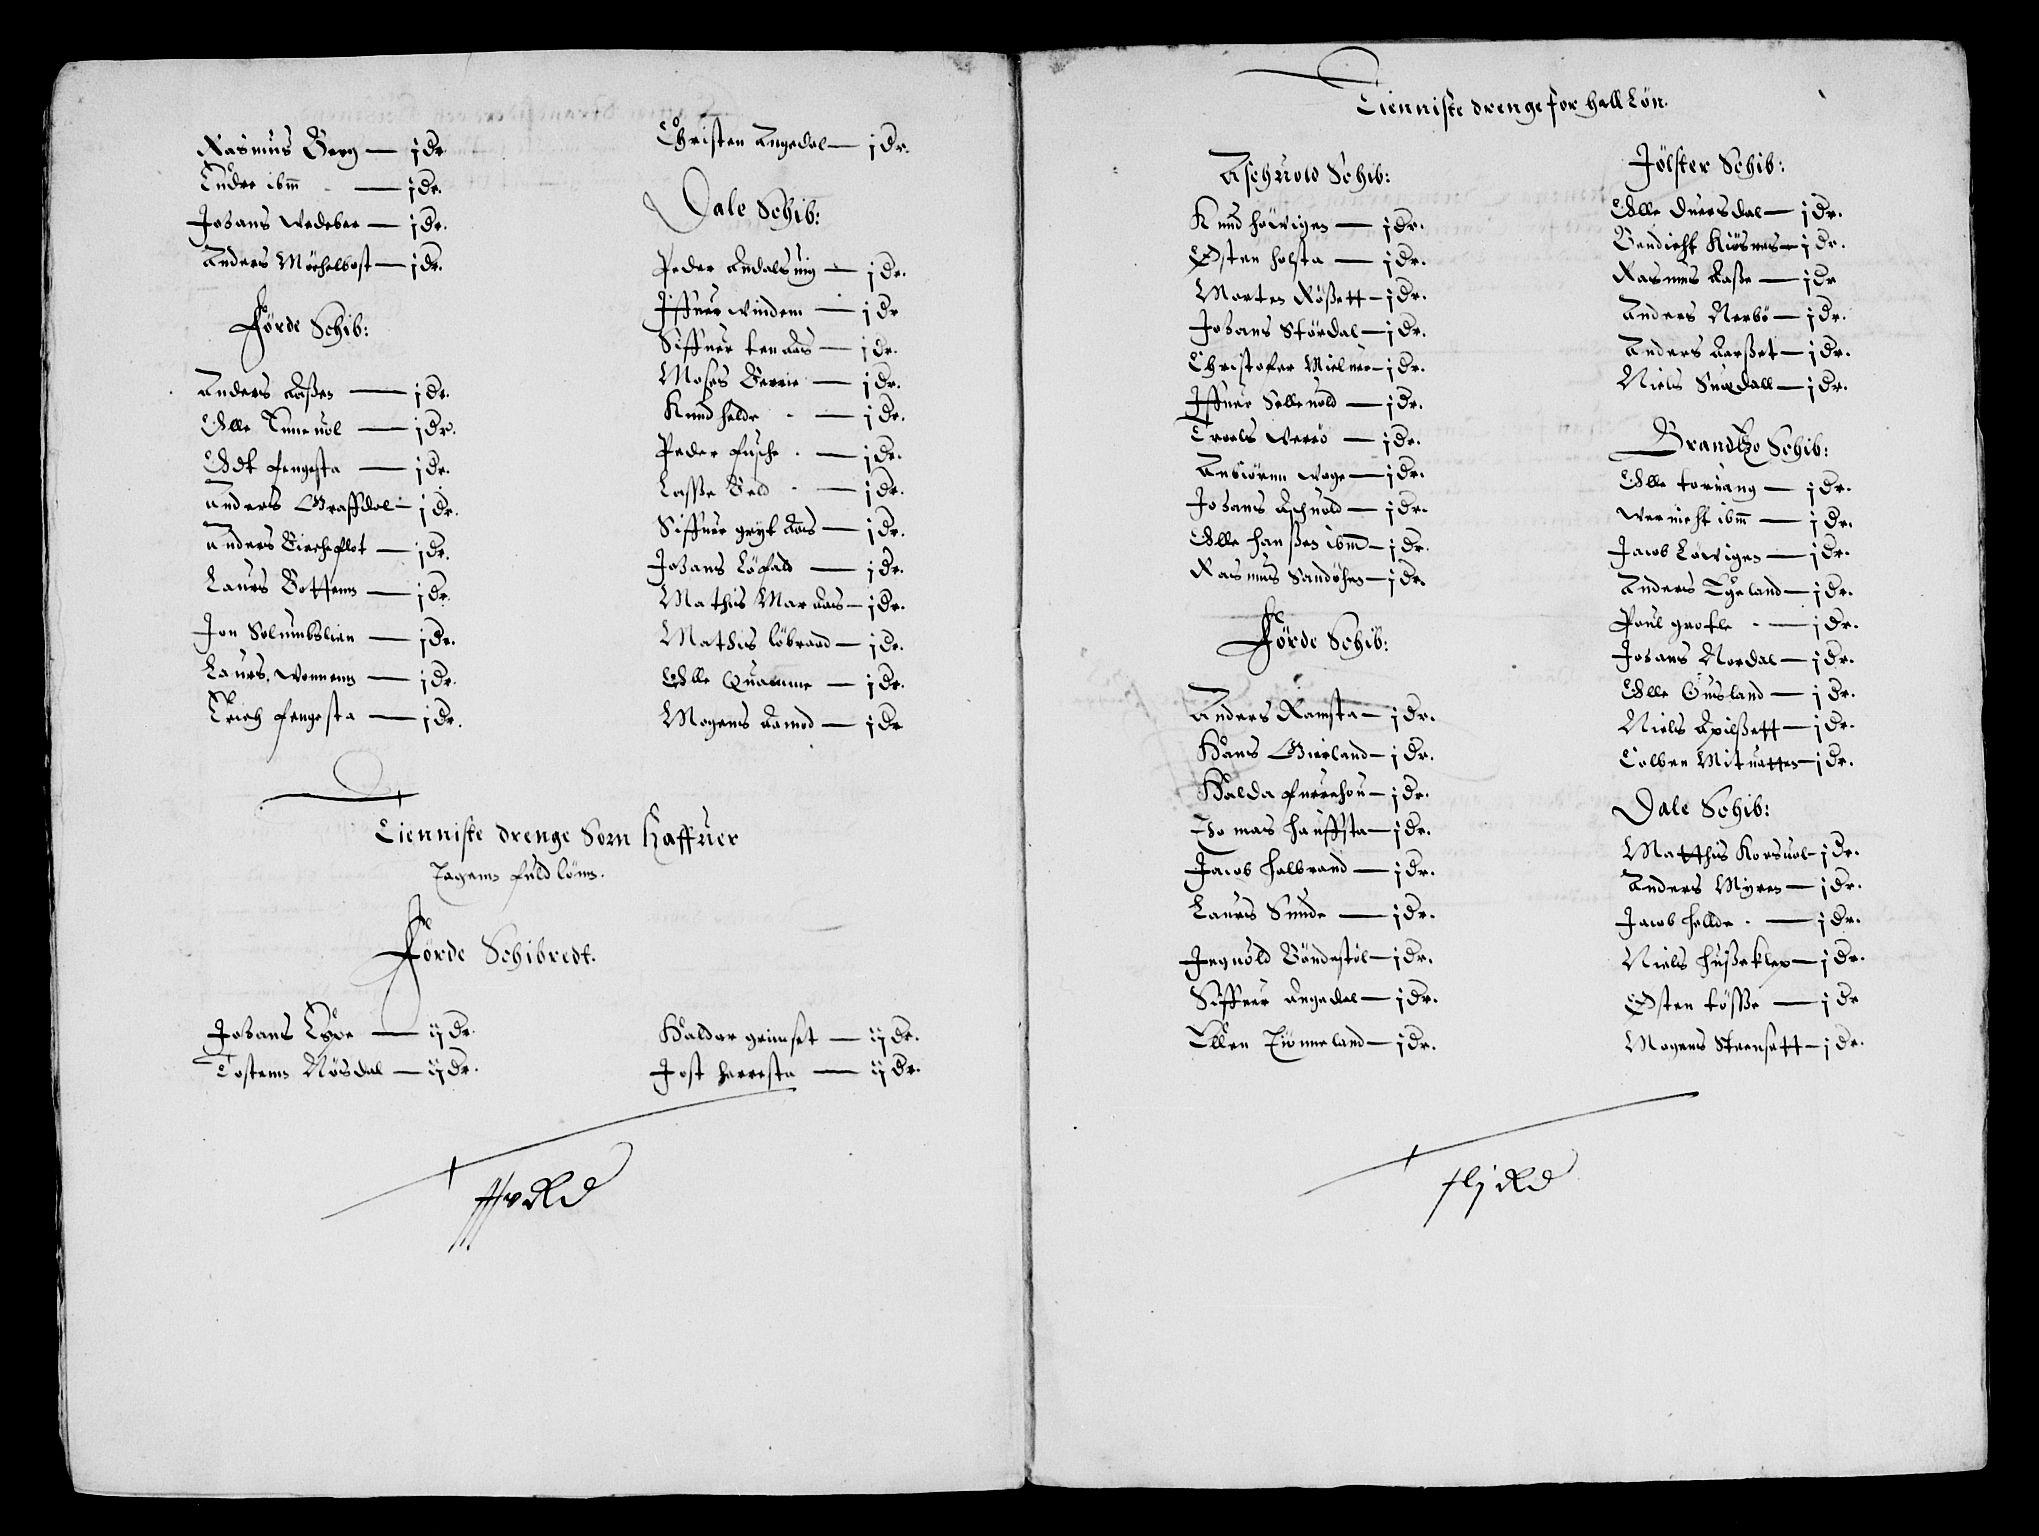 Rasmus Berg — j dr
Endre ibm — j dr.
Johans Wedeber — j dr.
Anders Mörchelbost — j dr.
Förde Schib:
Anders Aaßen — j dr.
Olle Tuneuol — j dr.
Odt Fengesta — j dr.
Anders Graffdal — j dr.
Anders Kircheflot — j dr.
Laurs Bottenn — j dr.
Jon Solumbslien — j dr.
Laurs. Wonnenn — j dr.
Erich Fengesta — j dr.
Christen Angedal — j dr.
Dale Schib:
Peder Andalsuig — j dr.
Jffuer Windem — j dr
Siffuer tenaas — j dr.
Moses Berrie — j dr.
Knud helde — j dr.
Peder Fusche — j dr.
Lasse Beld — j dr.
Siffuer gryt Aas — j dr.
Johans Löfald — j dr.
Mathis Mar aas — j dr.
Mathis löbraad — j dr.
Olle Quamme — j dr.
Mogens Aamod — j dr
Tienniste drenge Som Haffuer
Tagenn fuld lönn.
Förde Schibredt.
Johans Espe — ij dr.
Tostenn Nösdal — ij dr.
Haldor grimset — ij dr.
Jost herresta — ij dr.
Tienniste drenge for hall Lön.
Aschuold Schib:
Knud höwigen — j dr.
Østen holsta — j dr.
Morten Rößett — j dr.
Johans Stördal — j dr.
Christofer Mielner — j dr.
Jffuer Selleuold — j dr.
Troels Werö — j dr.
Anbiörnn Wage — j dr.
Johans Aschuold — j dr.
Olle hanßen ibm — j dr.
Rasmus Sandöhen — j dr.
Förde Schib:
Anders Ramsta — j dr.
Hans Gierland — j dr.
Halda Furrehou — j dr.
Thomas hauffsta — j dr.
Jacob halbrand — j dr.
Laurs Sunde — j dr.
Jnguold Böndestöl — j dr.
Siffuer Angedal — j dr.
Ellen Tiönneland — j dr.
Jölster Schib:
Olle Duersdal — j dr.
Bendicht Kiösnes — j dr.
Rasmus Aaße — j dr
Anders Nerbö — j dr.
Anders Aarßet — j dr.
Niels Suædall — j dr.
Brandtzo Schib:
Olle toruang — j dr.
Wernicht ibm — j dr.
Jacob Löwigen — j dr.
Anders Tÿeland — j dr.
Poul grotle — j dr.
Johans Nordal — j dr.
Olle Gusland — j dr.
Niels Apilßett — j dr.
Tolben Mituatten — j dr.
Dale Schib:
Matthis Korsuol — j dr.
Anders Myren — j dr.
Jacob hellde — j dr.
Niels hußeklep — j dr.
Østen tösse — j dr
Mogens Steensett — j dr.